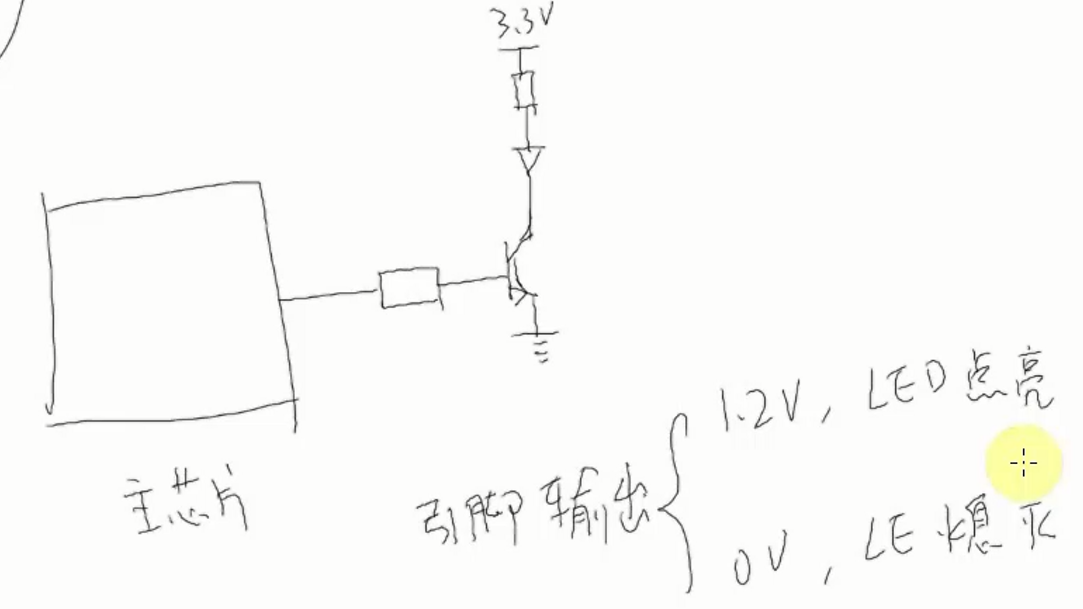 3.3V
主芯片
引脚输出
1.2V, LED点亮
0V, LE熄灭